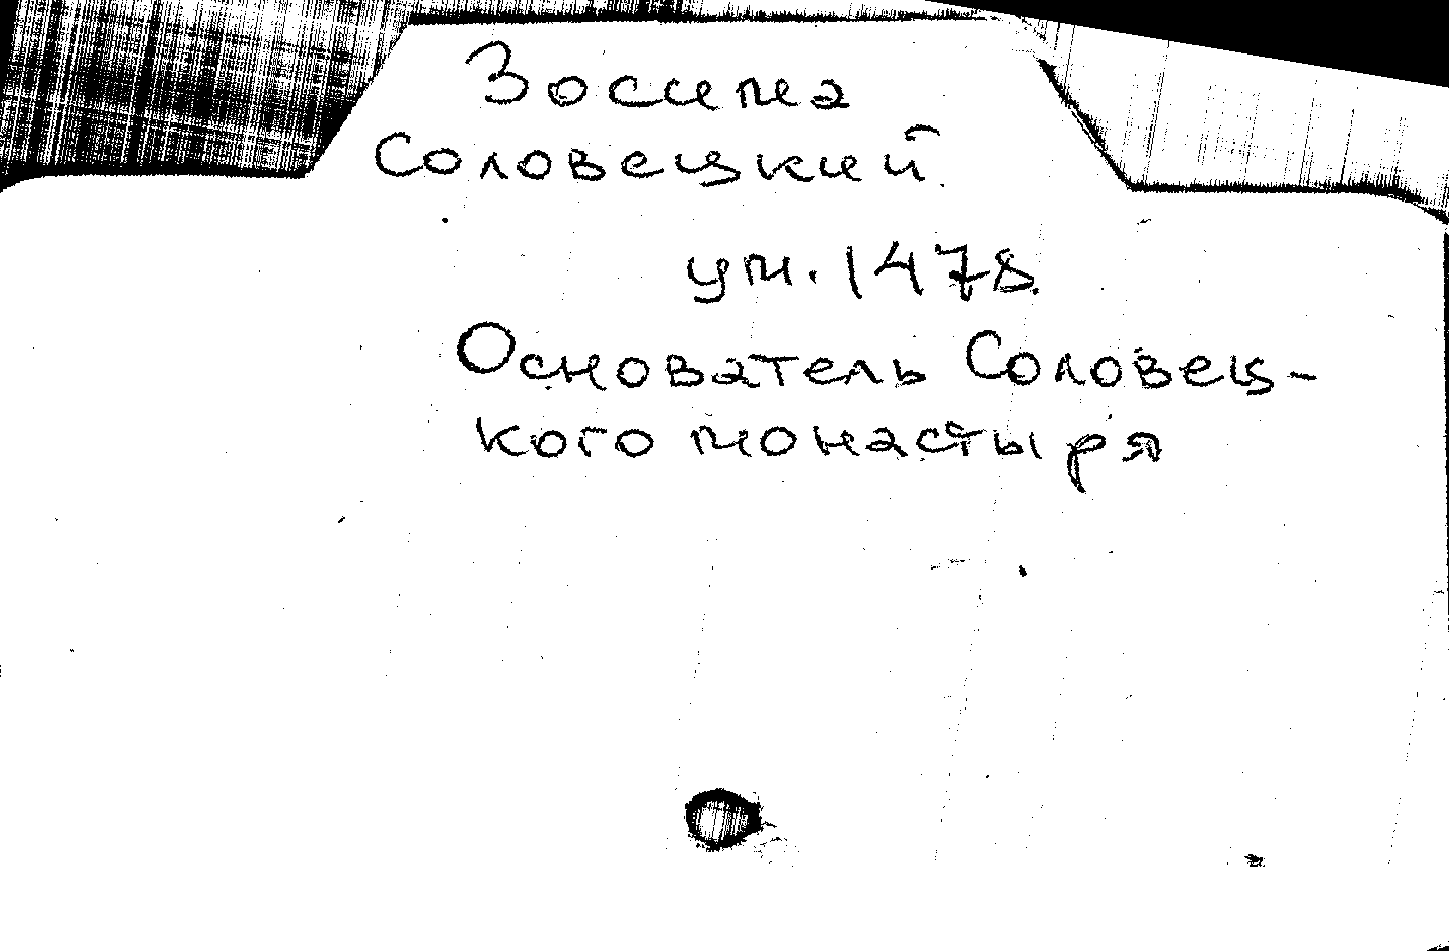 Зосима
Соловецкий
ум. 1478.
Основатель Соловец-
кого монастыря